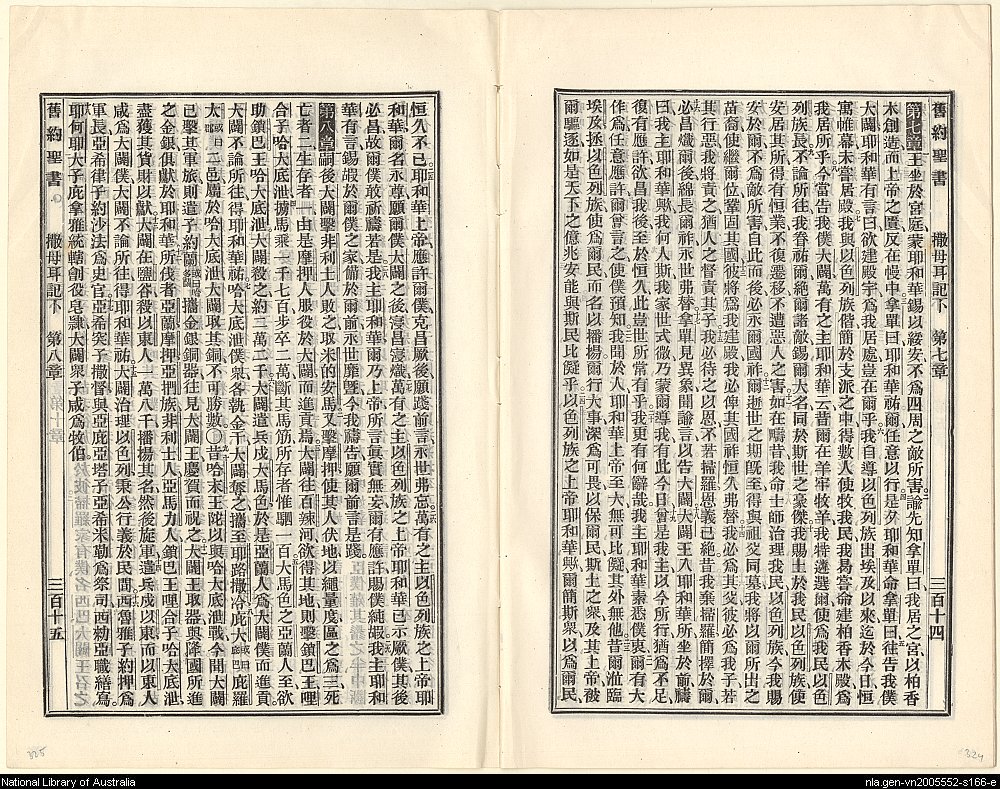 舊約聖書 撒母耳記下 第七章 三百十四
第七章 王坐於宮庭蒙耶和華錫以綏安不爲四周之敵所害諭先知拿單曰我居之宮以柏香
木創造而上帝之匱反在幔中拿單曰耶和華祐爾任意以行是夕耶和華命拿單曰往告我僕
大闢耶和華有言曰欲建殿宇爲我居處豈在爾乎我自導以色列族出埃及以來迄於今日恒
寓帷幕未嘗居殿我與以色列族偕簡於支派之中得數人使牧我民我曷嘗命建柏香木殿爲
我居所乎今當告我僕大闢萬有之主耶和華云昔爾在羊牢牧羊我特遴選爾使爲我民以色
列族長不論所往我眷祐爾絕爾諸敵錫爾大名同於斯世之豪傑我賜土於我民以色列族使
安居其所得有恒業不復遷移不遭惡人之害如在疇昔我命士師治理我民以色列族今我賜
爾爾不爲敵所害自此而後必永爾國祚爾逝世之期旣至得與祖父同墓我將以爾所出之
苗裔使繼爾位鞏固其國彼將爲我建殿我必俾其國祚恒久弗替我必爲其父彼必爲我子若
其行惡我將責之猶人之督責其子我必待之以恩不若掃羅恩義已絕昔我棄掃羅簡擇於爾
必昌熾爾後綿長爾祚永世弗替拿單見異象聞諭言以告大闢大闢王入耶和華所坐於前禱
曰我主耶和華歟我何人斯我家世式微乃蒙爾導我有此今日曾是我主以今所行猶爲不足
復有應許欲昌我後至於恒久此豈世所常有乎我更有何辭哉我主耶和華素悉僕衷爾有大
作爲任意應許爾曾言之使僕預知我聞於人耶和華上帝至大無可比儗其外無他昔爾涖臨
埃及拯以色列族使爲爾民而名以播揚爾行大事深爲可畏以保爾民斯土之衆及其上帝被
爾驅逐如是天下之億兆安能與斯民比儗乎以色列族之上帝耶和華歟爾簡斯衆以爲爾民
恒久不已耶和華上帝應許爾僕克昌厥後願踐前言永世弗忘萬有之主以色列族之上帝耶
和華爾名永尊願爾僕大闢之後寖昌寖熾萬有之主以色列族之上帝耶和華已示厥僕其後
必昌故爾僕敢祈禱若是我主耶和華爾乃上帝所言眞實無妄爾有應許賜僕純嘏我主耶和
華有言錫嘏於爾僕之家備於爾前永世靡暨今我禱告願爾前言是踐
第八章 嗣後大闢擊非利士人敗之取米的安馬又擊摩押使其人伏地以繩量度區之爲三死
亡者二生存者一由是摩押人服役於大闢而進貢焉大闢往百辣河欲得其地則擊鎖巴王哩
合子哈大底泄擄馬乘一千七百步卒二萬斷其馬筋所存者惟駟一百大馬色之亞蘭人至欲
助鎖巴王哈大底泄大闢殺之約二萬二千大闢遣兵戍大馬色於是亞蘭人爲大闢僕而進貢
大闢不論所往得耶和華祐哈大底泄僕衆各執金干大闢奪之攜至耶路撒冷庇大庇羅
太二邑屬於哈大底泄大闢取其銅不可勝數○昔哈末王陀以與哈大底泄戰今聞大闢
已擊其軍旅則遣子約蘭攜金銀銅器往見大闢王慶賀而祝之大闢王取器與降國所進
之金銀俱獻於耶和華所伐者亞蘭摩押亞捫族非利士人亞馬力人鎖巴王哩合子哈大底泄
盡獲其貨財以獻大闢在鹽谷殺以東人一萬八千播揚其名然後旋軍遣兵戍以東而以東人
咸爲大闢僕大闢不論所往得耶和華祐大闢治理以色列秉公行義於民間西魯雅子約押爲
軍長亞希律子約沙法爲史官亞希突子撒督與亞庇亞塔子亞希米勒爲祭司西勑亞職繕寫
耶何耶大子庇拿雅統轄劊役皂隸大闢衆子咸爲牧伯
舊約聖書 撒母耳記下 第八章 三百十五
325
324
National Library of Australia
nla.gen-vn2005552-s166-e